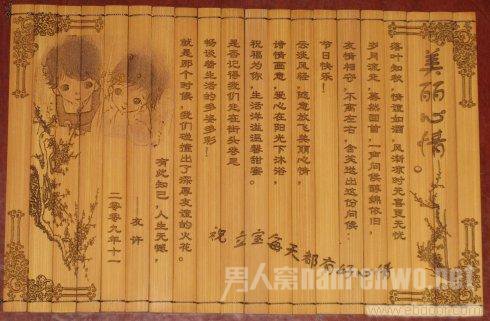 美丽心情
落叶知秋，情谊如酒，风渐凉时无喜更无忧
岁月流走，蓦然回首，一声问候醇绵依旧，
友情相守，不离左右，含笑送出这份问候：
节日快乐！
云淡风轻，随意放飞美丽心情，
诗情画意，爱心在阳光下沐浴，
祝福为你，生活洋溢温馨甜蜜。
是否记得我们走在街头巷尾
畅谈着生活的多姿多彩！
就是那个时候，我们碰撞出了深厚友谊的火花。
有此知己，人生无憾，
——友 许
二零零九年十一
祝 立宝每天都有好心情
男人窝 nanrenwo.net